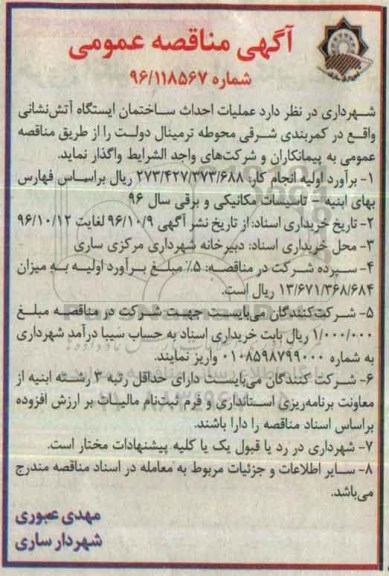 آگهی مناقصه عمومی
شماره ۹۶/۱۱۸۵۶۷
شهرداری در نظر دارد عملیات احداث ساختمان ایستگاه آتش‌نشانی
واقع در کمربندی شرقی محوطه ترمینال دولت را از طریق مناقصه
عمومی به پیمانکاران و شرکت‌های واجد الشرایط واگذار نماید.
۱- برآورد اولیه انجام کار: ۲۷۳/۴۲۷/۳۷۳/۶۸۸ ریال براساس فهارس
بهای ابنیه - تاسیسات مکانیکی و برقی سال ۹۶
۲- تاریخ خریداری اسناد: از تاریخ نشر آگهی ۹۶/۱۰/۹ لغایت ۹۶/۱۰/۱۲
۳- محل خریداری اسناد: دبیرخانه شهرداری مرکزی ساری
۴- سپرده شرکت در مناقصه: ۵٪ مبلغ برآورد اولیه به میزان
۱۳/۶۷۱/۳۶۸/۶۸۴ ریال است.
۵- شرکت‌کنندگان می‌بایست جهت شرکت در مناقصه مبلغ
۱/۰۰۰/۰۰۰ ریال بابت خریداری اسناد به حساب سیبا درآمد شهرداری
به شماره ۰۱۰۸۵۹۸۷۹۹۰۰۰ واریز نمایند.
۶- شرکت کنندگان می‌بایست دارای حداقل رتبه ۳ رشته ابنیه از
معاونت برنامه‌ریزی استانداری و فرم ثبت‌نام مالیات بر ارزش افزوده
براساس اسناد مناقصه را دارا باشند.
۷- شهرداری در رد یا قبول یک یا کلیه پیشنهادات مختار است.
۸- سایر اطلاعات و جزئیات مربوط به معامله در اسناد مناقصه مندرج
می‌باشد.
مهدی عبوری
شهردار ساری